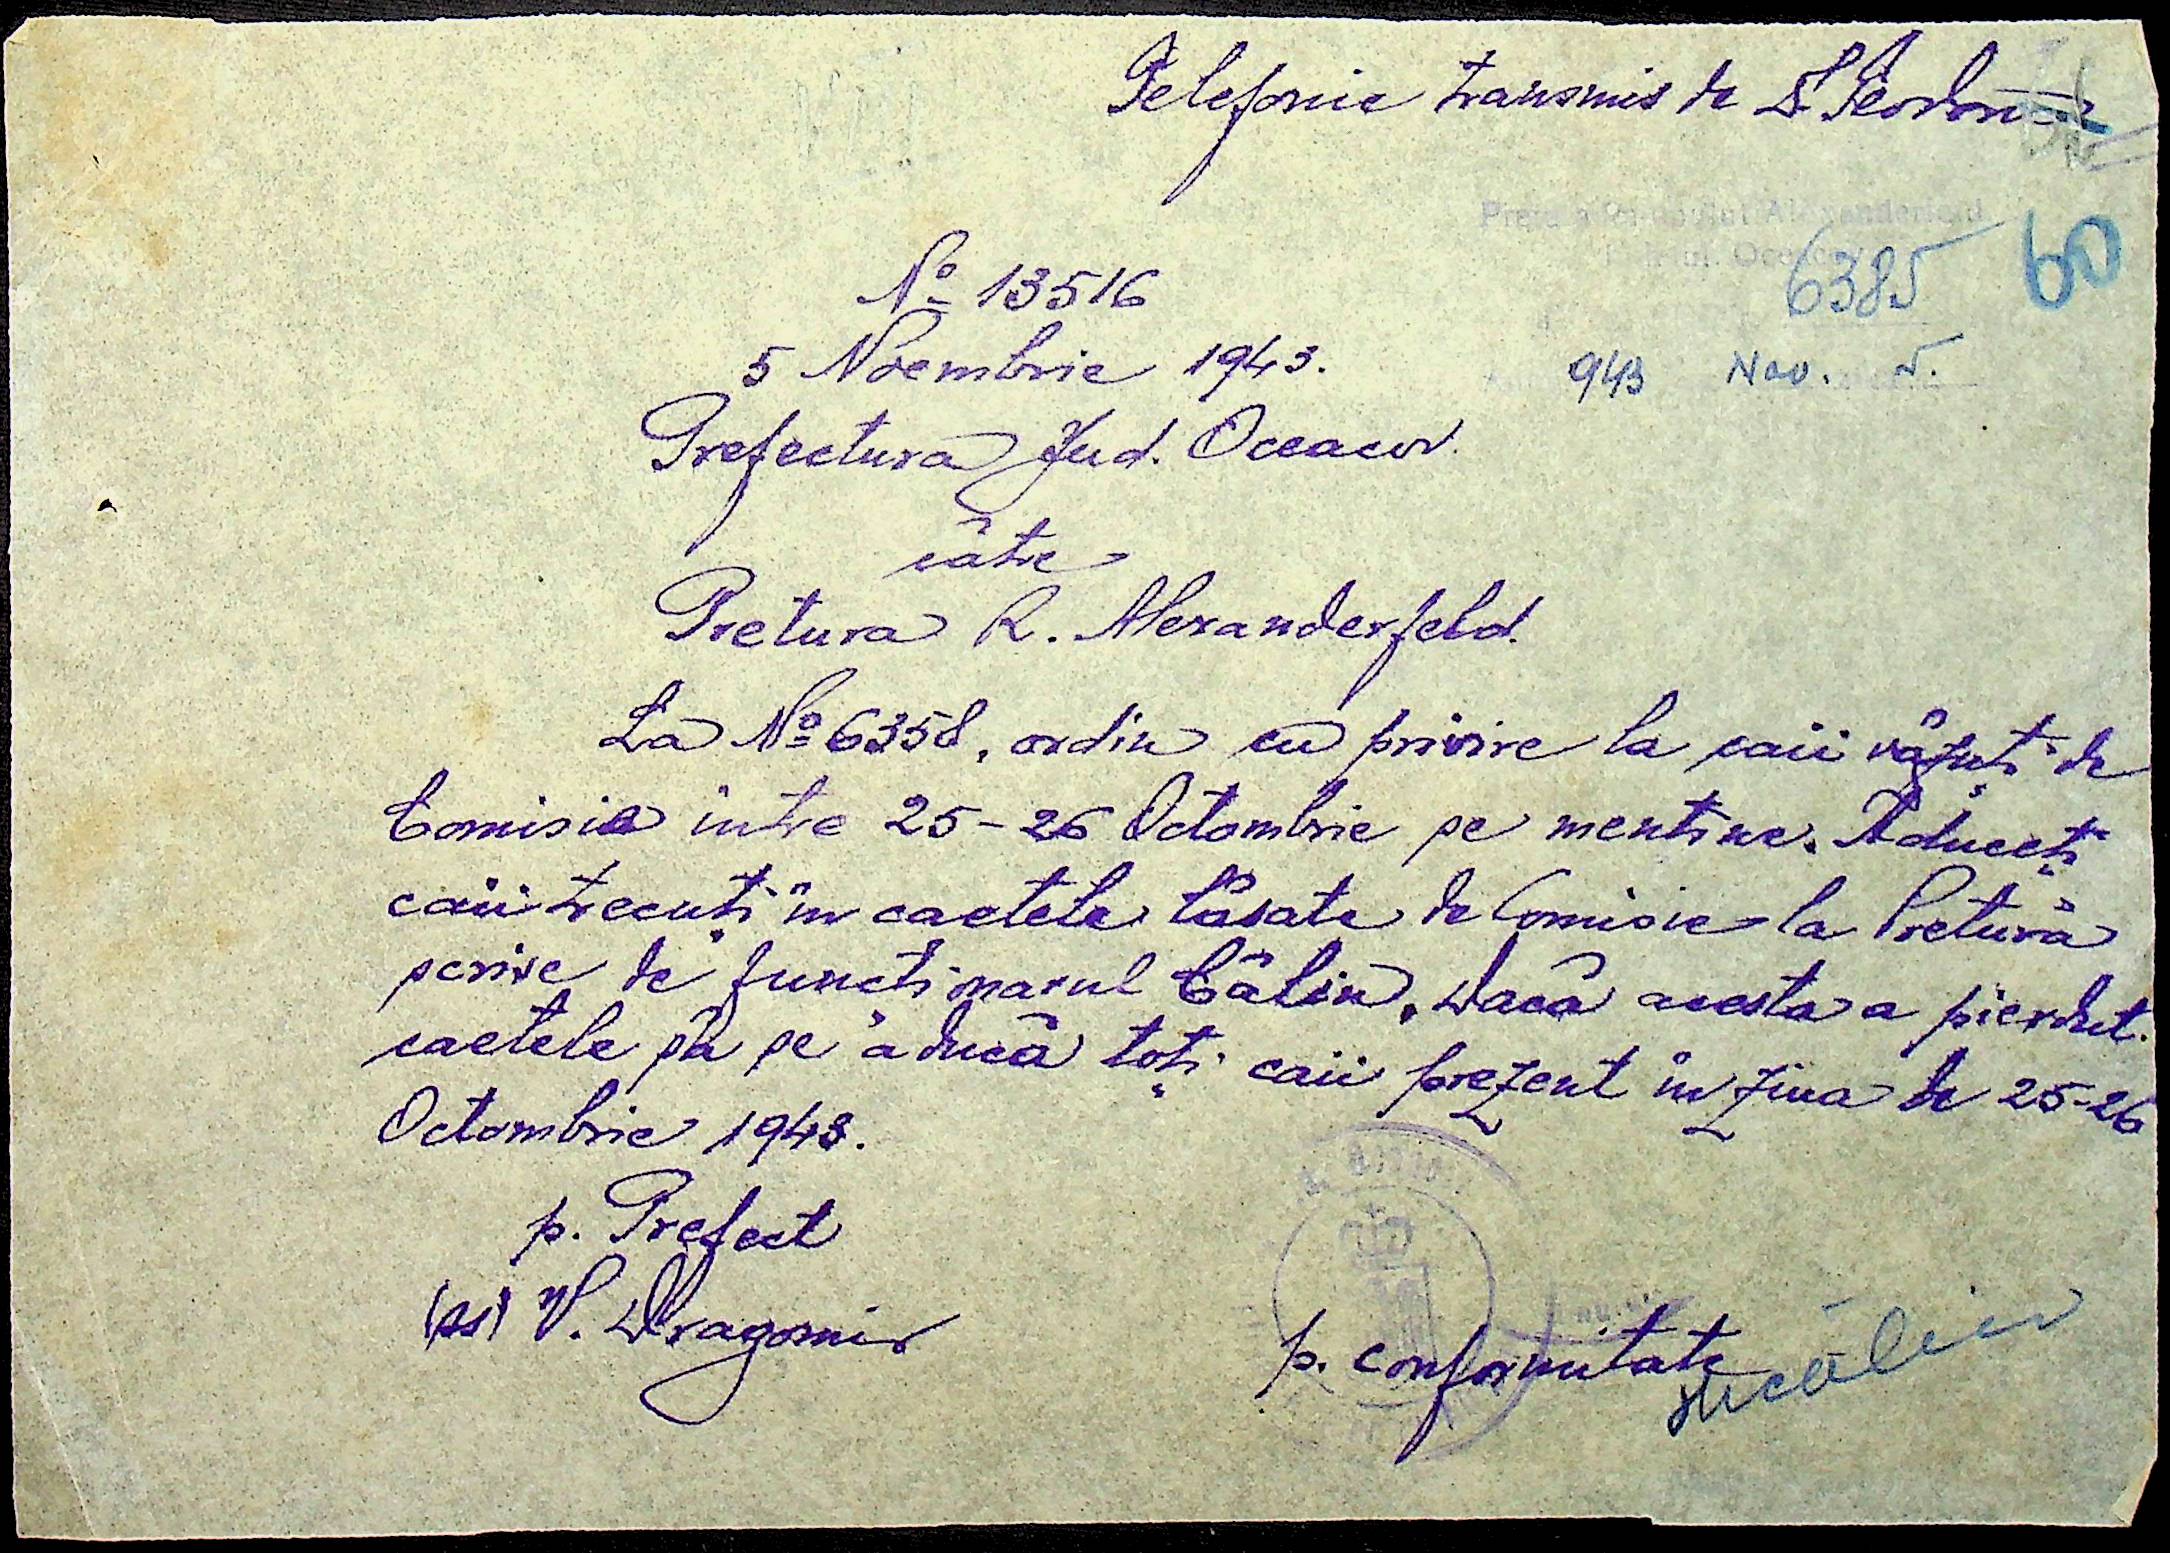 Telefonic transmis de D.
Pretura Raionului Alexanderfeld
60
6385
№ 13516
5 Noembrie 1943.
943 Nov. 5.
Prefectura Jud. Oceacov.
câtre
Pretura R. Alexanderfeld.
La № 6358, ordin cu privire la caii vâzuți de
Comisia intre 25-26 Octombrie se mentine. Aduceți
caii trecuți în caetele lâsate de Comisie la Preturâ
scrise de funcționarul Câlin. Dacâ acesta a pierdut
caetele sâ se aducâ toți caii prezent în ziua de 25-26
Octombrie 1943.
p. Prefect
(ss) V. Dragomir
p. conformitate